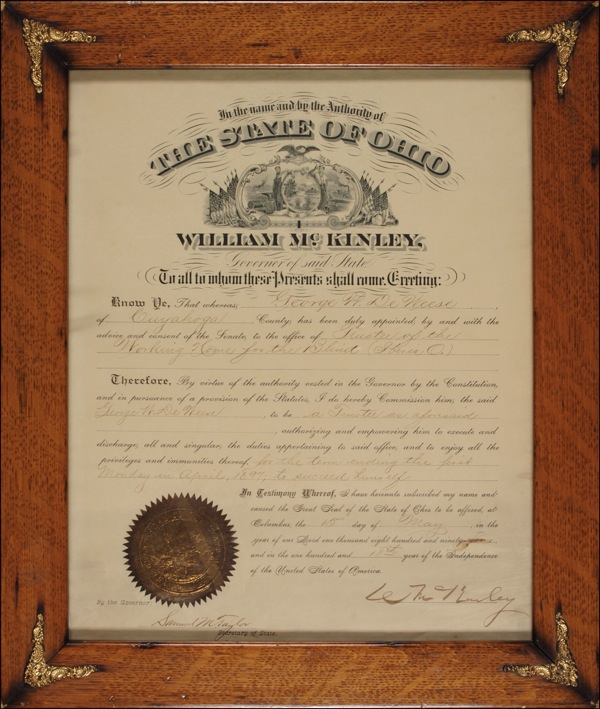 In the name and by the Authority of
THE STATE OF OHIO
WILLIAM Mc KINLEY,
Governor of said State
To all to whom these Presents shall come, Greeting:
Know Ye, That whereas, George W. De Weese,
of Cuyahoga County, has been duly appointed, by and with the
advice and consent of the Senate, to the office of Trustee of the
Working Home for the Blind (Iberia O.)
Therefore, By virtue of the authority vested in the Governor by the Constitution,
and in pursuance of a provision of the Statutes, I do hereby Commission him, the said
George W. De Weese to be a Trustee as aforesaid
, authorizing and empowering him to execute and
discharge, all and singular, the duties appertaining to said office, and to enjoy all the
privileges and immunities thereof, for the term ending the first
Monday in April, 1897, to succeed himself
In Testimony Whereof, I have hereunto subscribed my name and
caused the Great Seal of the State of Ohio to be affixed, at
Columbus, the 15 day of May, in the
year of our Lord one thousand eight hundred and ninety
and in the one hundred and 18th year of the Independence
of the United States of America.
Wm McKinley
By the Governor:
Samuel M. Taylor
Secretary of State.